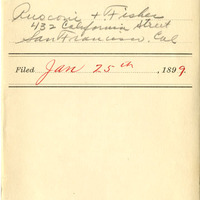 Rusconi & Fisher
432 California Street
San Francisco, Cal
Filed Jan 25th, 1899.